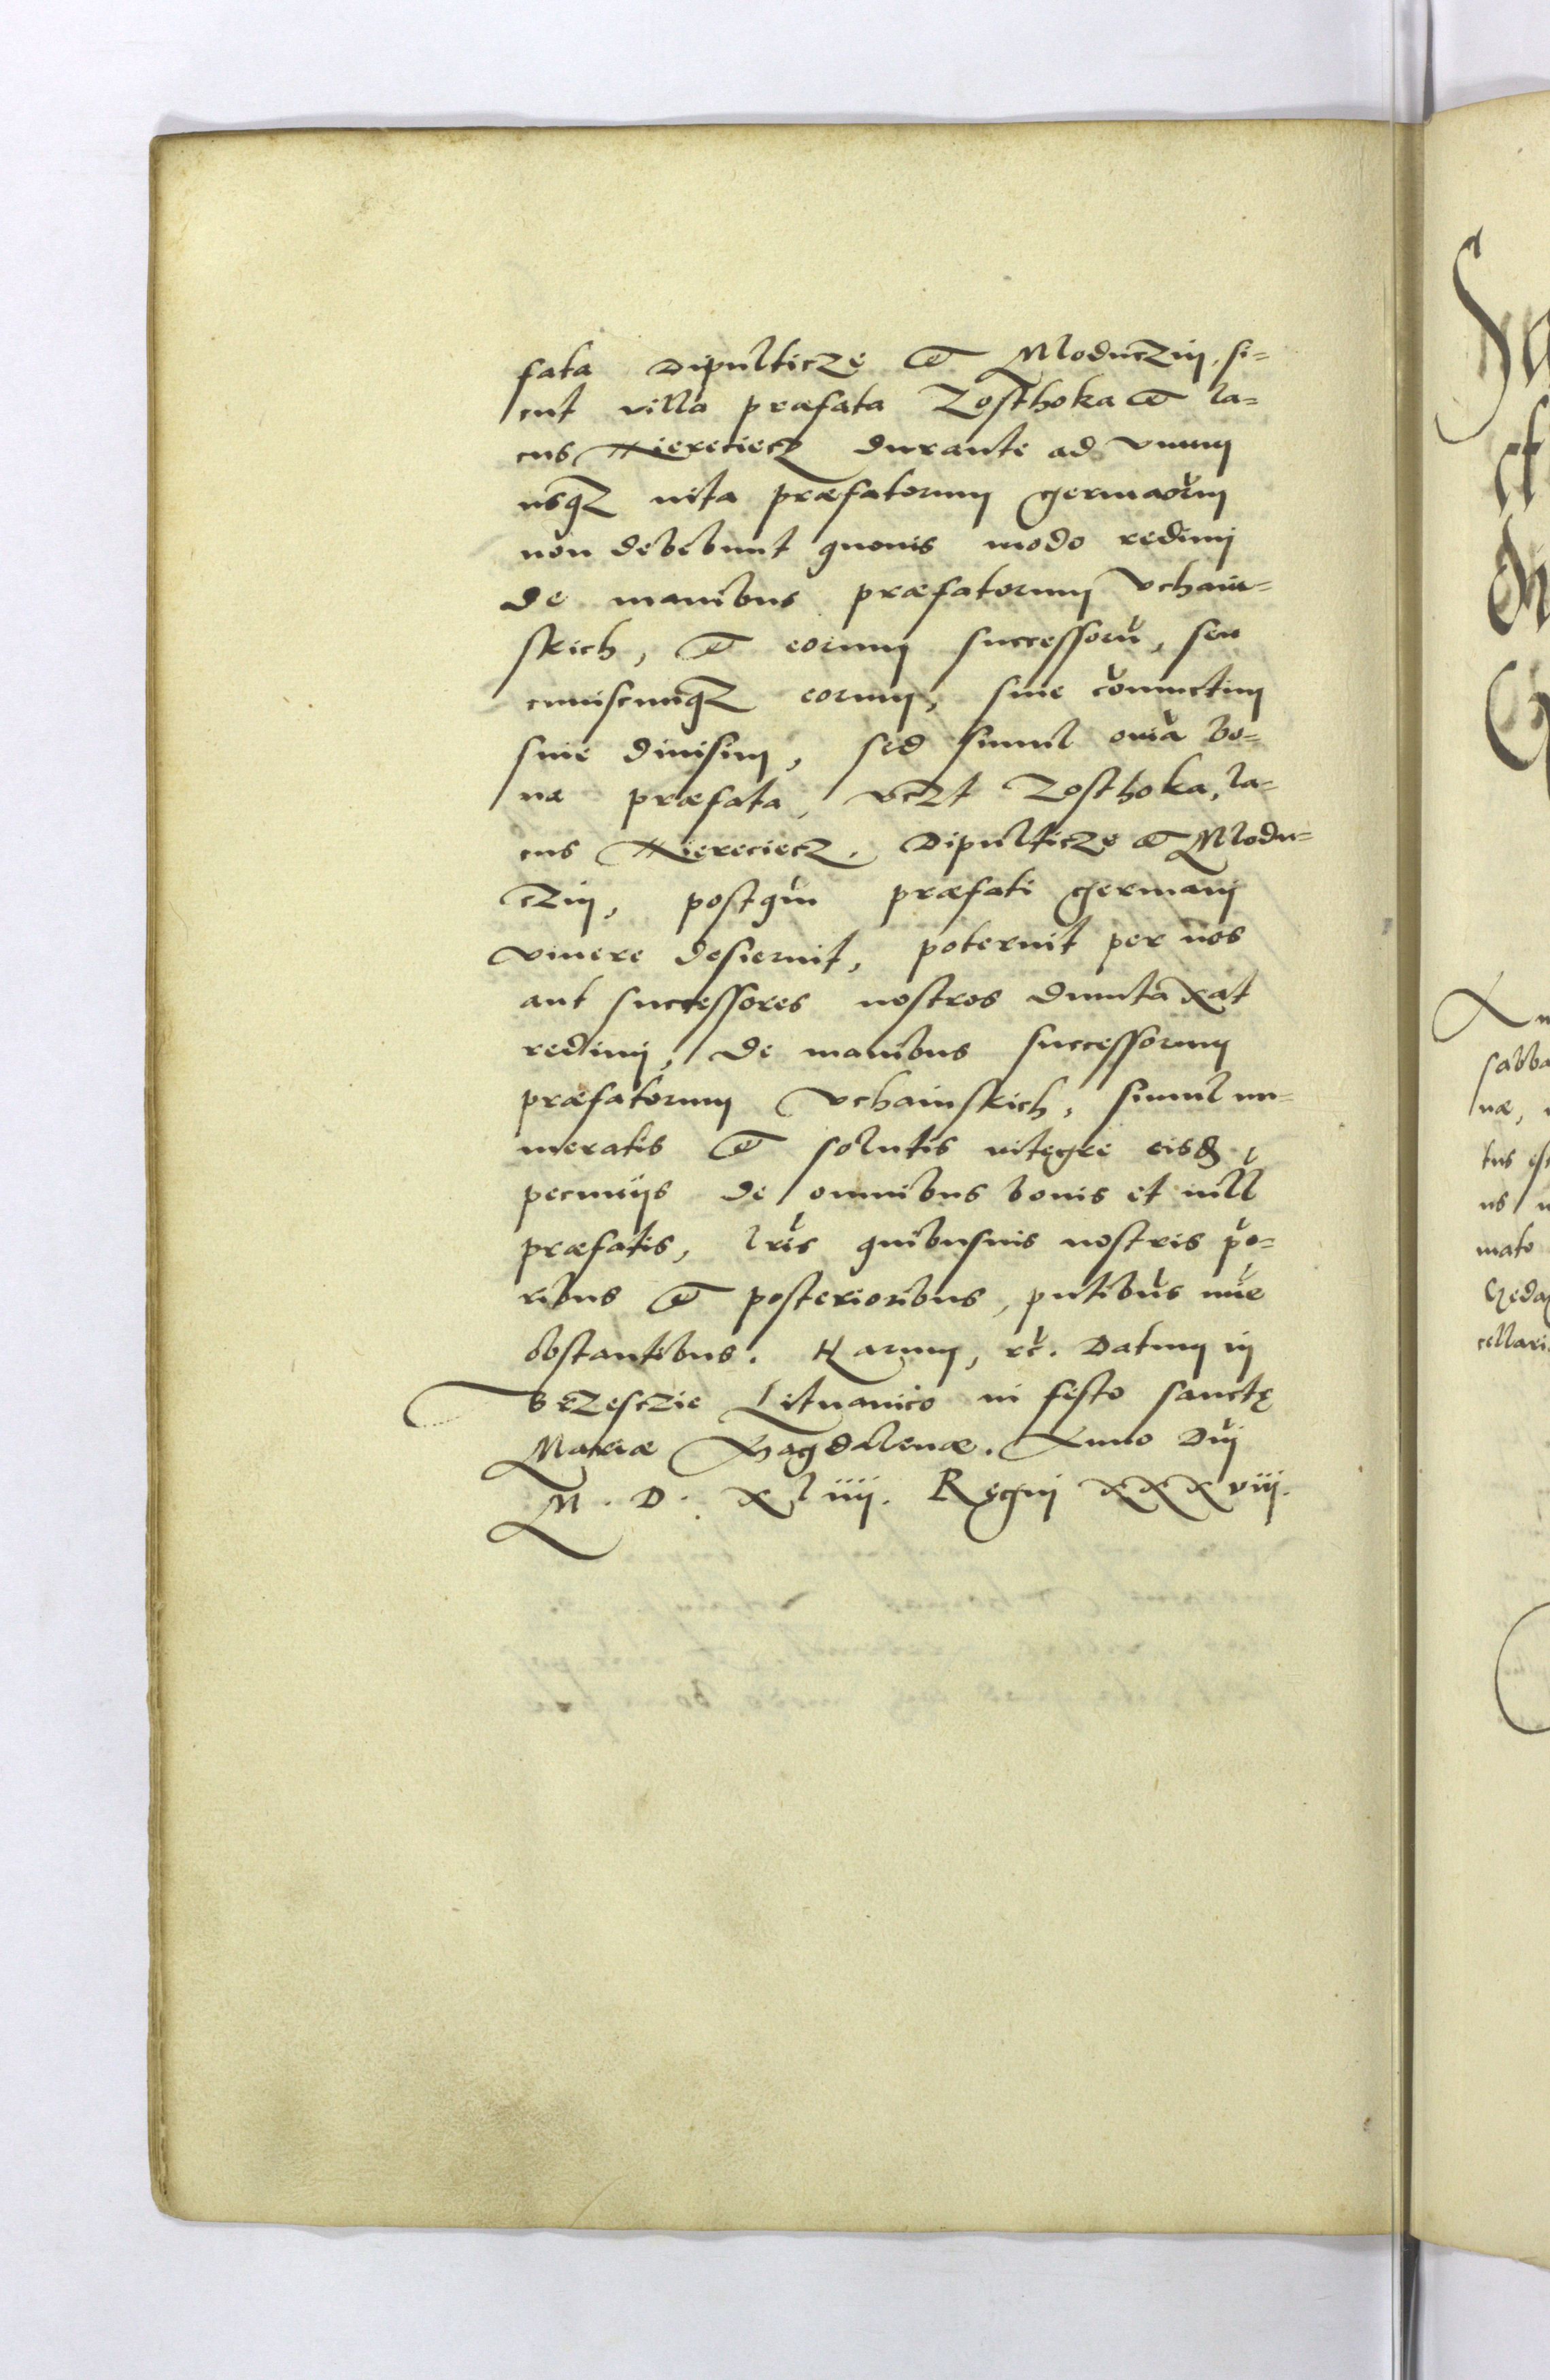 fata Dipulticze et Mloduczin, si=
cut villa præfata Zosthoka et la=
cus Wierecziecz durante ad vnum
usqz uita præfatorum germaorum
non debebunt quouis modo redimi
de manibus præfatorum Vchain=
skich, et eorum successorũ, seu
cuiuscunqz eorum, siue coniunctim
siue diuisim, sed simul oĩa bo=
na præfata, vczt Zosthoka, la=
cus Wierecziecz, Dipulticze et Modu=
czin, postqm̃ præfati germani
viuere desierint, poterint per nos
aut successores nostros duntaxat
redimi, de manibus successorum
præfatorum Vchainskich, simul nu=
meratis et solutis integre eisd
pecunijs de omnibus bonis et uill
præfatis, lris quibusuis nostris prio=
ribus et posterioribus, pntibus nue
obstantibus. Harum, rc̃. Datum in
Brzesczie Lituanico in festo sanctę
Mariæ Magdalenæ. Anno Dñi
M. D. xliiii. Regni xxxviij.
Sa
et
Gi
An
sabba
næ,
tus est
us
mato
Geda
cellari